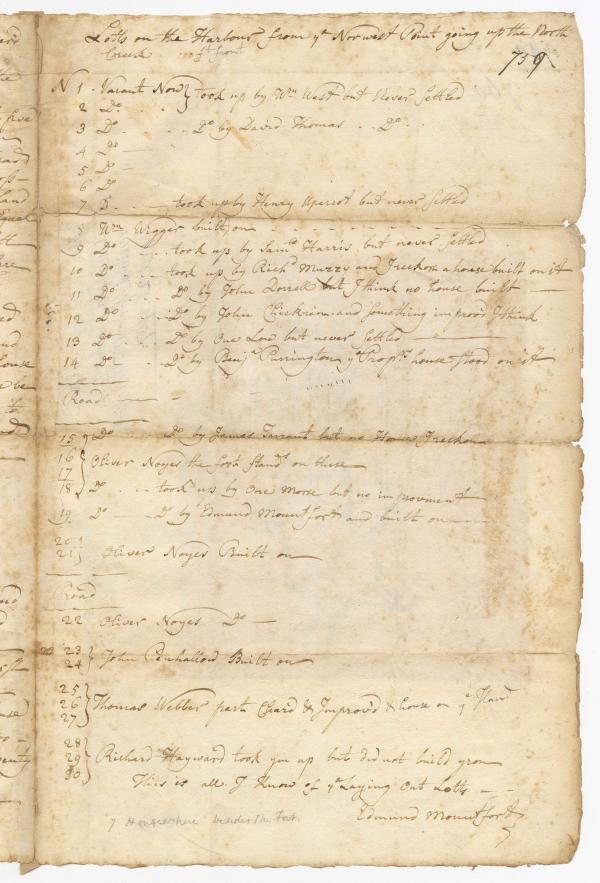 Lotts on the Harbour from yᵉ Norwest Point going up the North
Creek 100 ft front
759
N 1 . Vacant Now } took up by Wm West but Never Settled
2 Do . .
3 Do . . . . Do by David Thomas . . Do .
4 Do
5 Do
6 Do
7 D . . . took up by Henry but never Settled
8 Wm Wigger built on . . . . . .
9 Do . . . took up by Samll Harris but never Settled
10 Do . . . took up by Richd Muzzy and I reckon a house built on it
11 Do . . . Do by John Dorrell but I think no house built
12 Do . . . Do by John and something improvd I think
13 Do . . . Do by One Low but never Settled
14 Do . . . Do by Benja Purrington yᵉ house stood on it
Road
15 Do . . Do by James Tarrant but no House I reckon
16 }
17 } Oliver Noyes the fort Stands on these
18 Do . . . took up by One Morse but no improvment
19 Do . . Do by Edmund Mountfort and built on
20 }
21 } Oliver Noyes Built on
Road
22 Oliver Noyes Do
23 }
24 } John Penhallow Built on
25 }
26 } Thomas Webber part Cleard & Improvd & house on yᵉ
27 }
28 }
29 } Richard Hayward took ym up but did not build yron
30 }
This is all I Know of yᵉ Laying Out Lotts
Edmund Mountfort
7 Houses here besides the Fort.